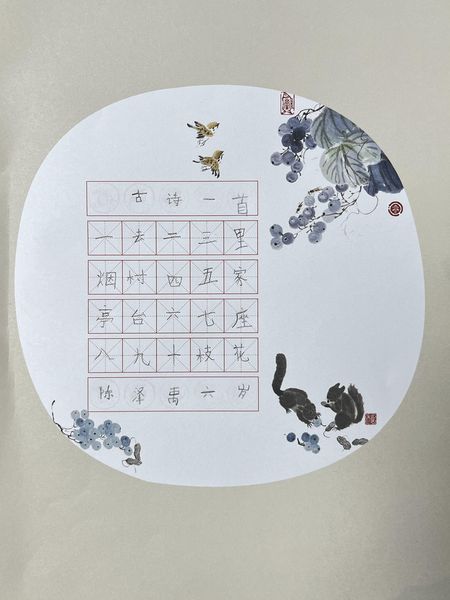 古诗一首
一去二三里
烟村四五家
亭台六七座
八九十枝花
陈泽禹六岁